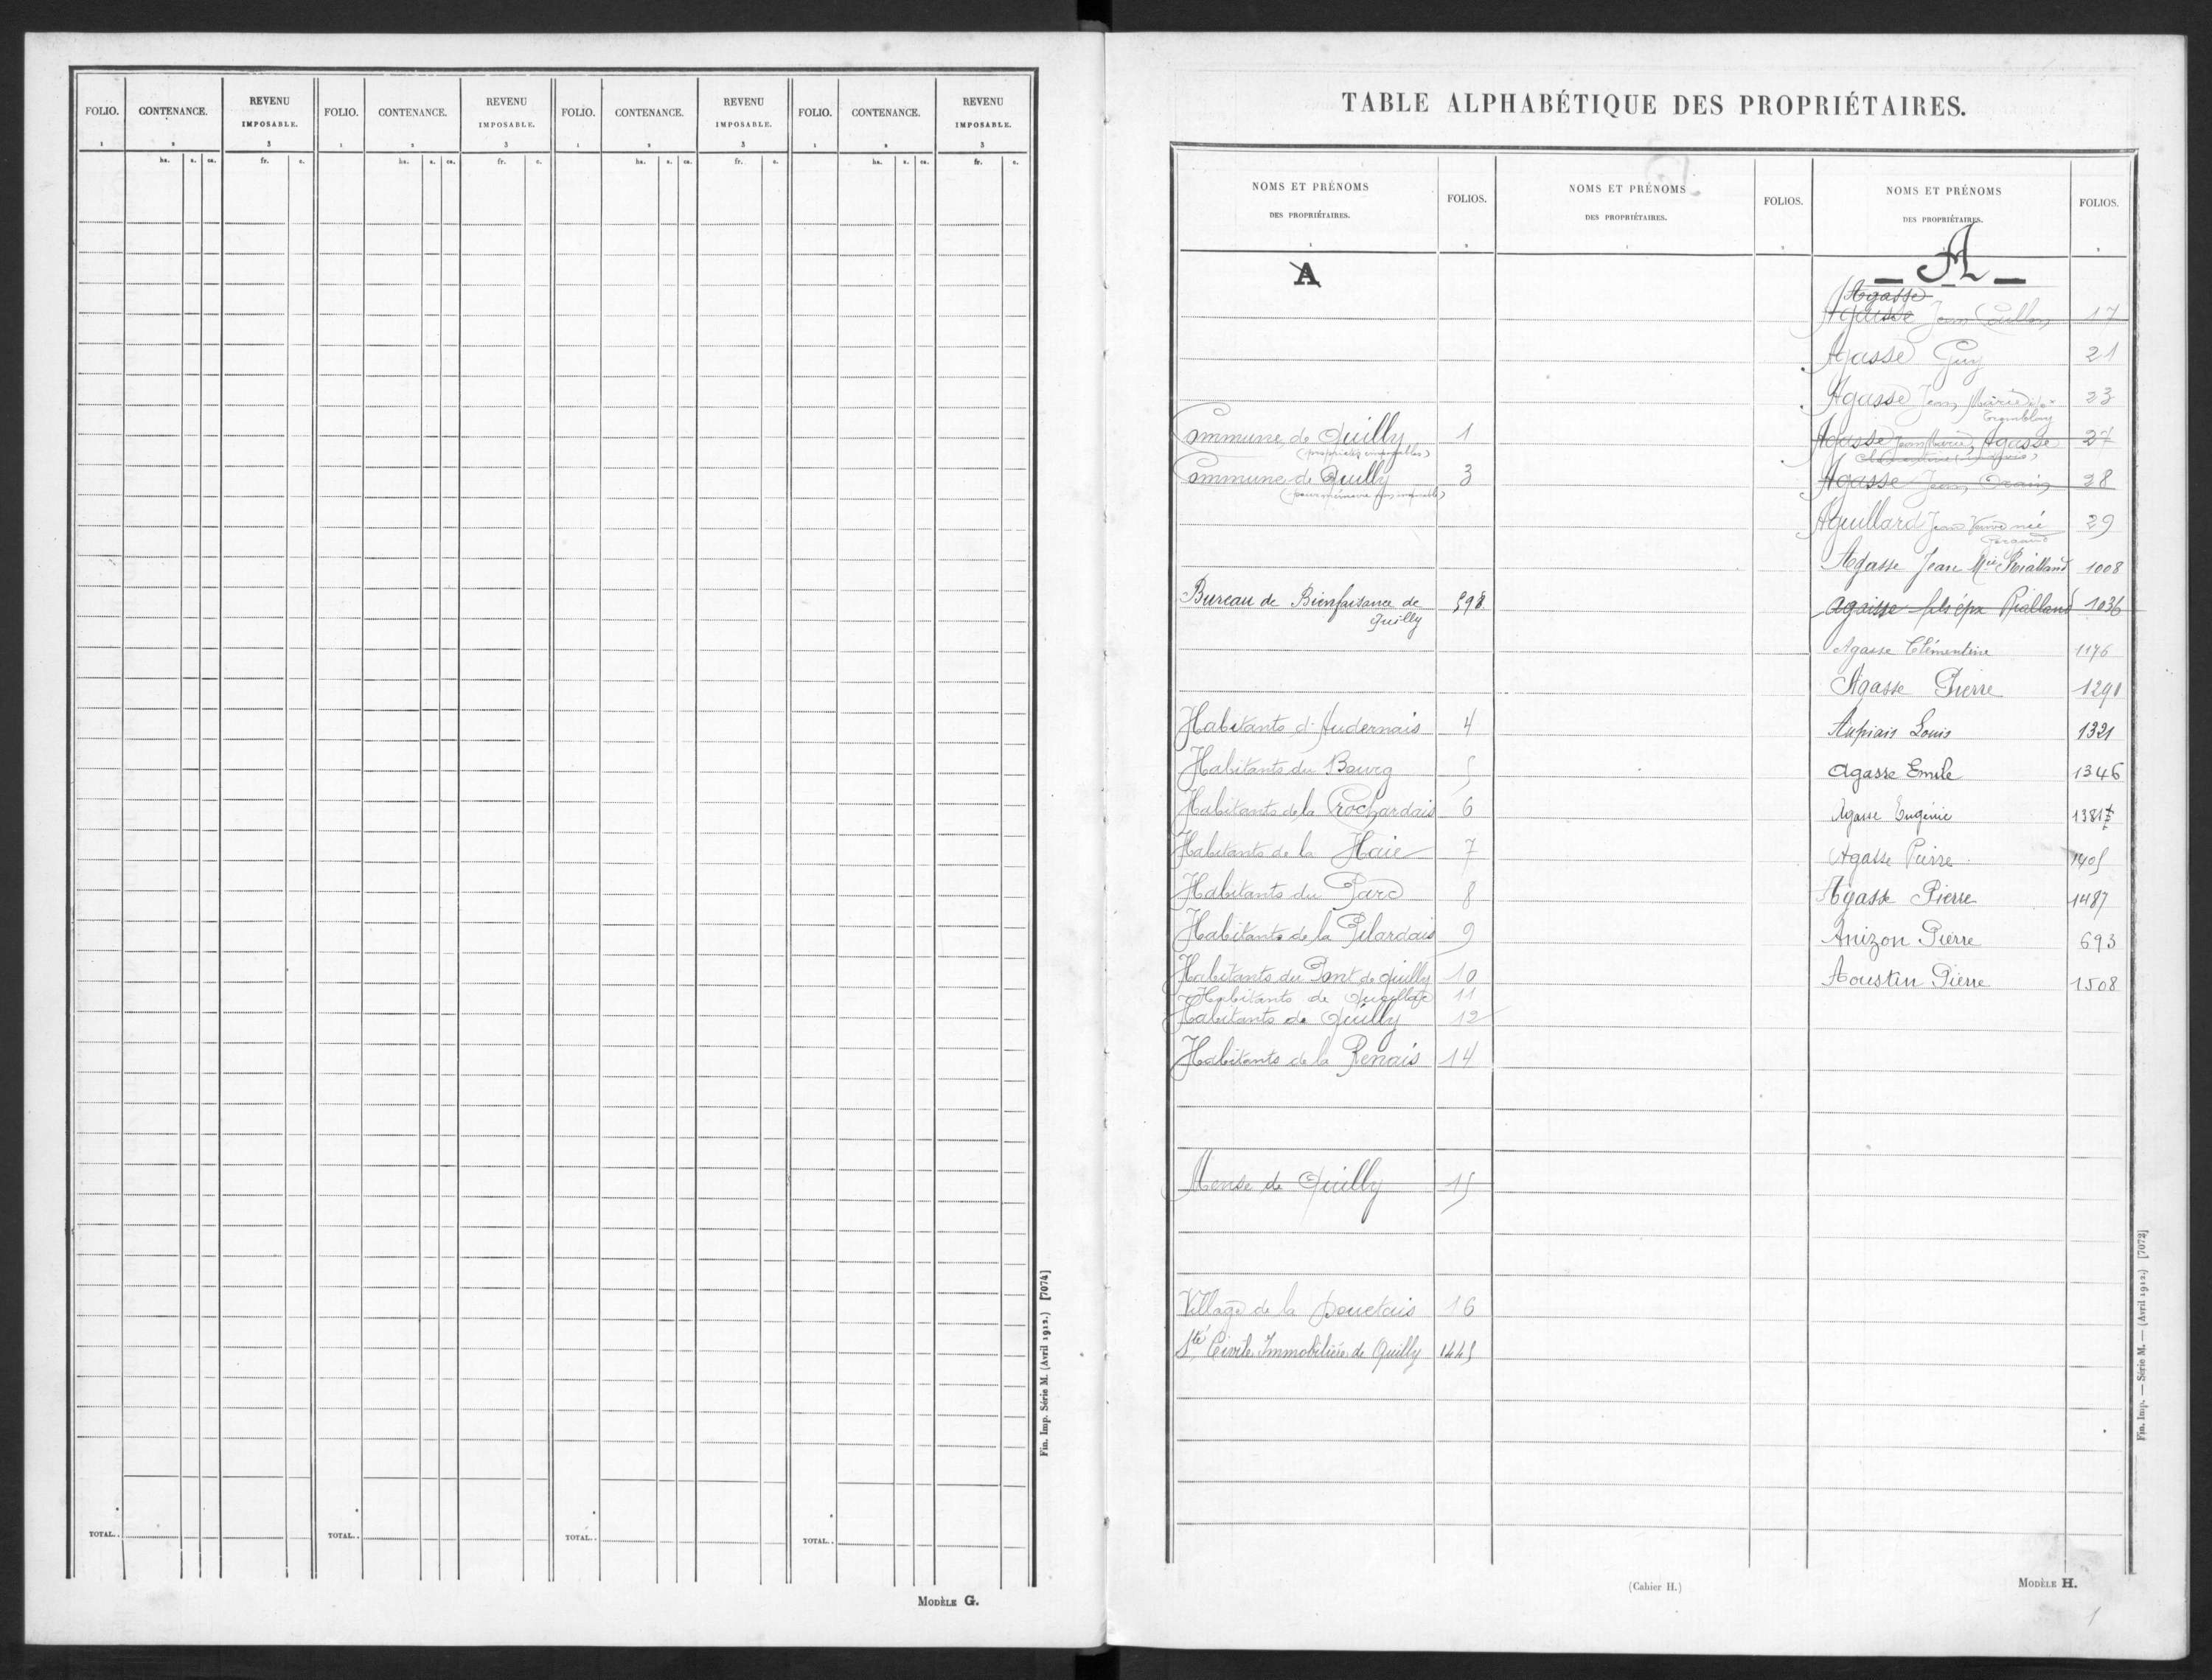 FOLIO. CONTENANCE. REVENU IMPOSABLE. FOLIO. CONTENANCE. REVENU IMPOSABLE. FOLIO. CONTENANCE. REVENU IMPOSABLE. FOLIO. CONTENANCE. REVENU IMPOSABLE.
1 2 3 1 2 3 1 2 3 1 2 3
ha. a. ca. fr. c. ha. a. ca. fr. c. ha. a. ca. fr. c. ha. a. ca. fr. c.
TOTAL.. TOTAL.. TOTAL.. TOTAL..
Fin. Imp. Série M. (Avril 1912.) [7074]
MODÈLE G.
TABLE ALPHABÉTIQUE DES PROPRIÉTAIRES.
NOMS ET PRÉNOMS
DES PROPRIÉTAIRES.
FOLIOS.
A
Commune de Quilly 1
(propriétés imposables)
Commune de Quilly 3
Bureau de Bienfaisance de 598
Quilly
Habitants d'Audernais 4
Habitants du Bourg 5
Habitants de la Crochardais 6
Habitants de la Haie 7
Habitants du Parc 8
Habitants de la Pilardais 9
Habitants du Pont de Quilly 10
Habitants de 11
Habitants de Quilly 12
Habitants de la Renais 14
Mense de Quilly 15
Village de la 16
Sté Civile Immobilière de Quilly 1445
NOMS ET PRÉNOMS
DES PROPRIÉTAIRES.
FOLIOS.
NOMS ET PRÉNOMS
DES PROPRIÉTAIRES.
FOLIOS.
A
Agasse
Jean 17
Agasse Guy 21
Agasse Jean Marie 23
Tremblay
Agasse Jean Marie, Agasse 27
Agasse Jean 28
Aguillard Jean Veuve née 29
Agasse Jean Mie Rialland 1008
Agaisse fils épx Rialland 1036
Agasse Clémentine 1176
Agasse Pierre 1291
Aupiais Louis 1321
Agasse Emile 1346
Agasse Eugénie 1381
Agasse Pierre 1405
Agasse Pierre 1487
Anizon Pierre 693
Aoustin Pierre 1508
Fin. Imp. — Série M. — (Avril 1912.) [7072]
(Cahier H.)
MODÈLE H.
1